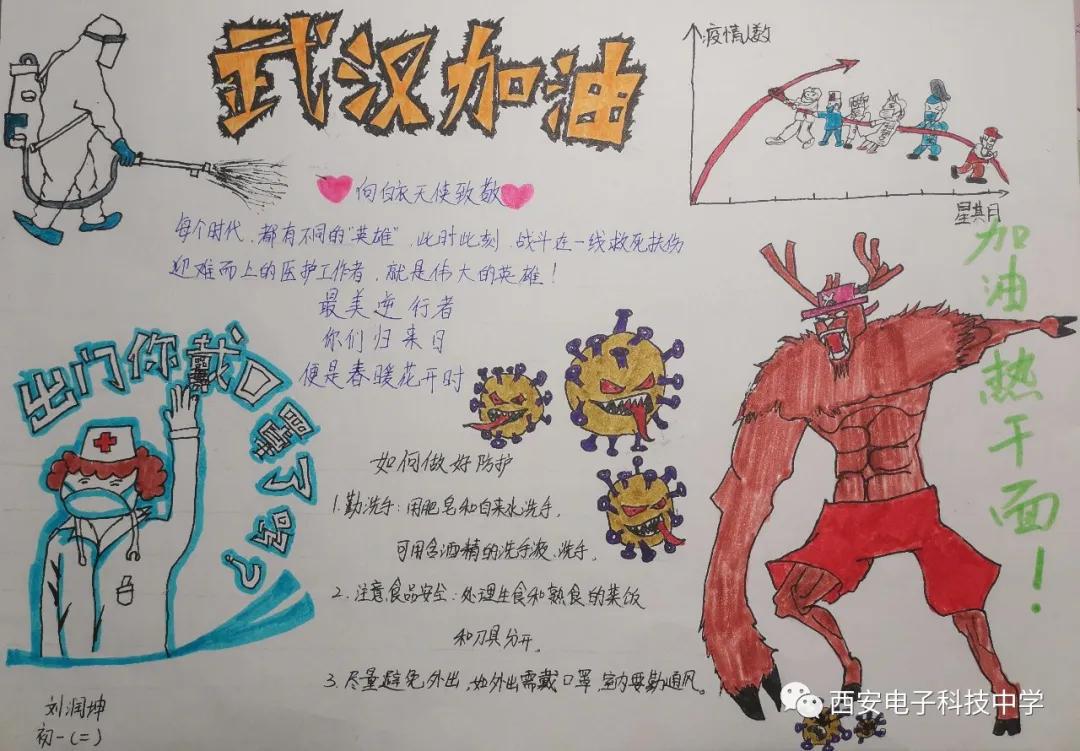 武汉加油
疫情人数
星期日
向白衣天使致敬
每个时代,都有不同的"英雄",此时此刻,战斗在一线救死扶伤
迎难而上的医护工作者,就是伟大的英雄!
最美逆行者
你们归来日
便是春暖花开时
加油热干面!
出门你戴口罩了吗?
如何做好防护
1.勤洗手:用肥皂和自来水洗手,
可用含酒精的洗手液、洗手。
2.注意食品安全:处理生食和熟食的菜饭
和刀具分开。
3.尽量避免外出,如外出需戴口罩,室内要勤通风。
刘润坤
初一(二)
西安电子科技中学